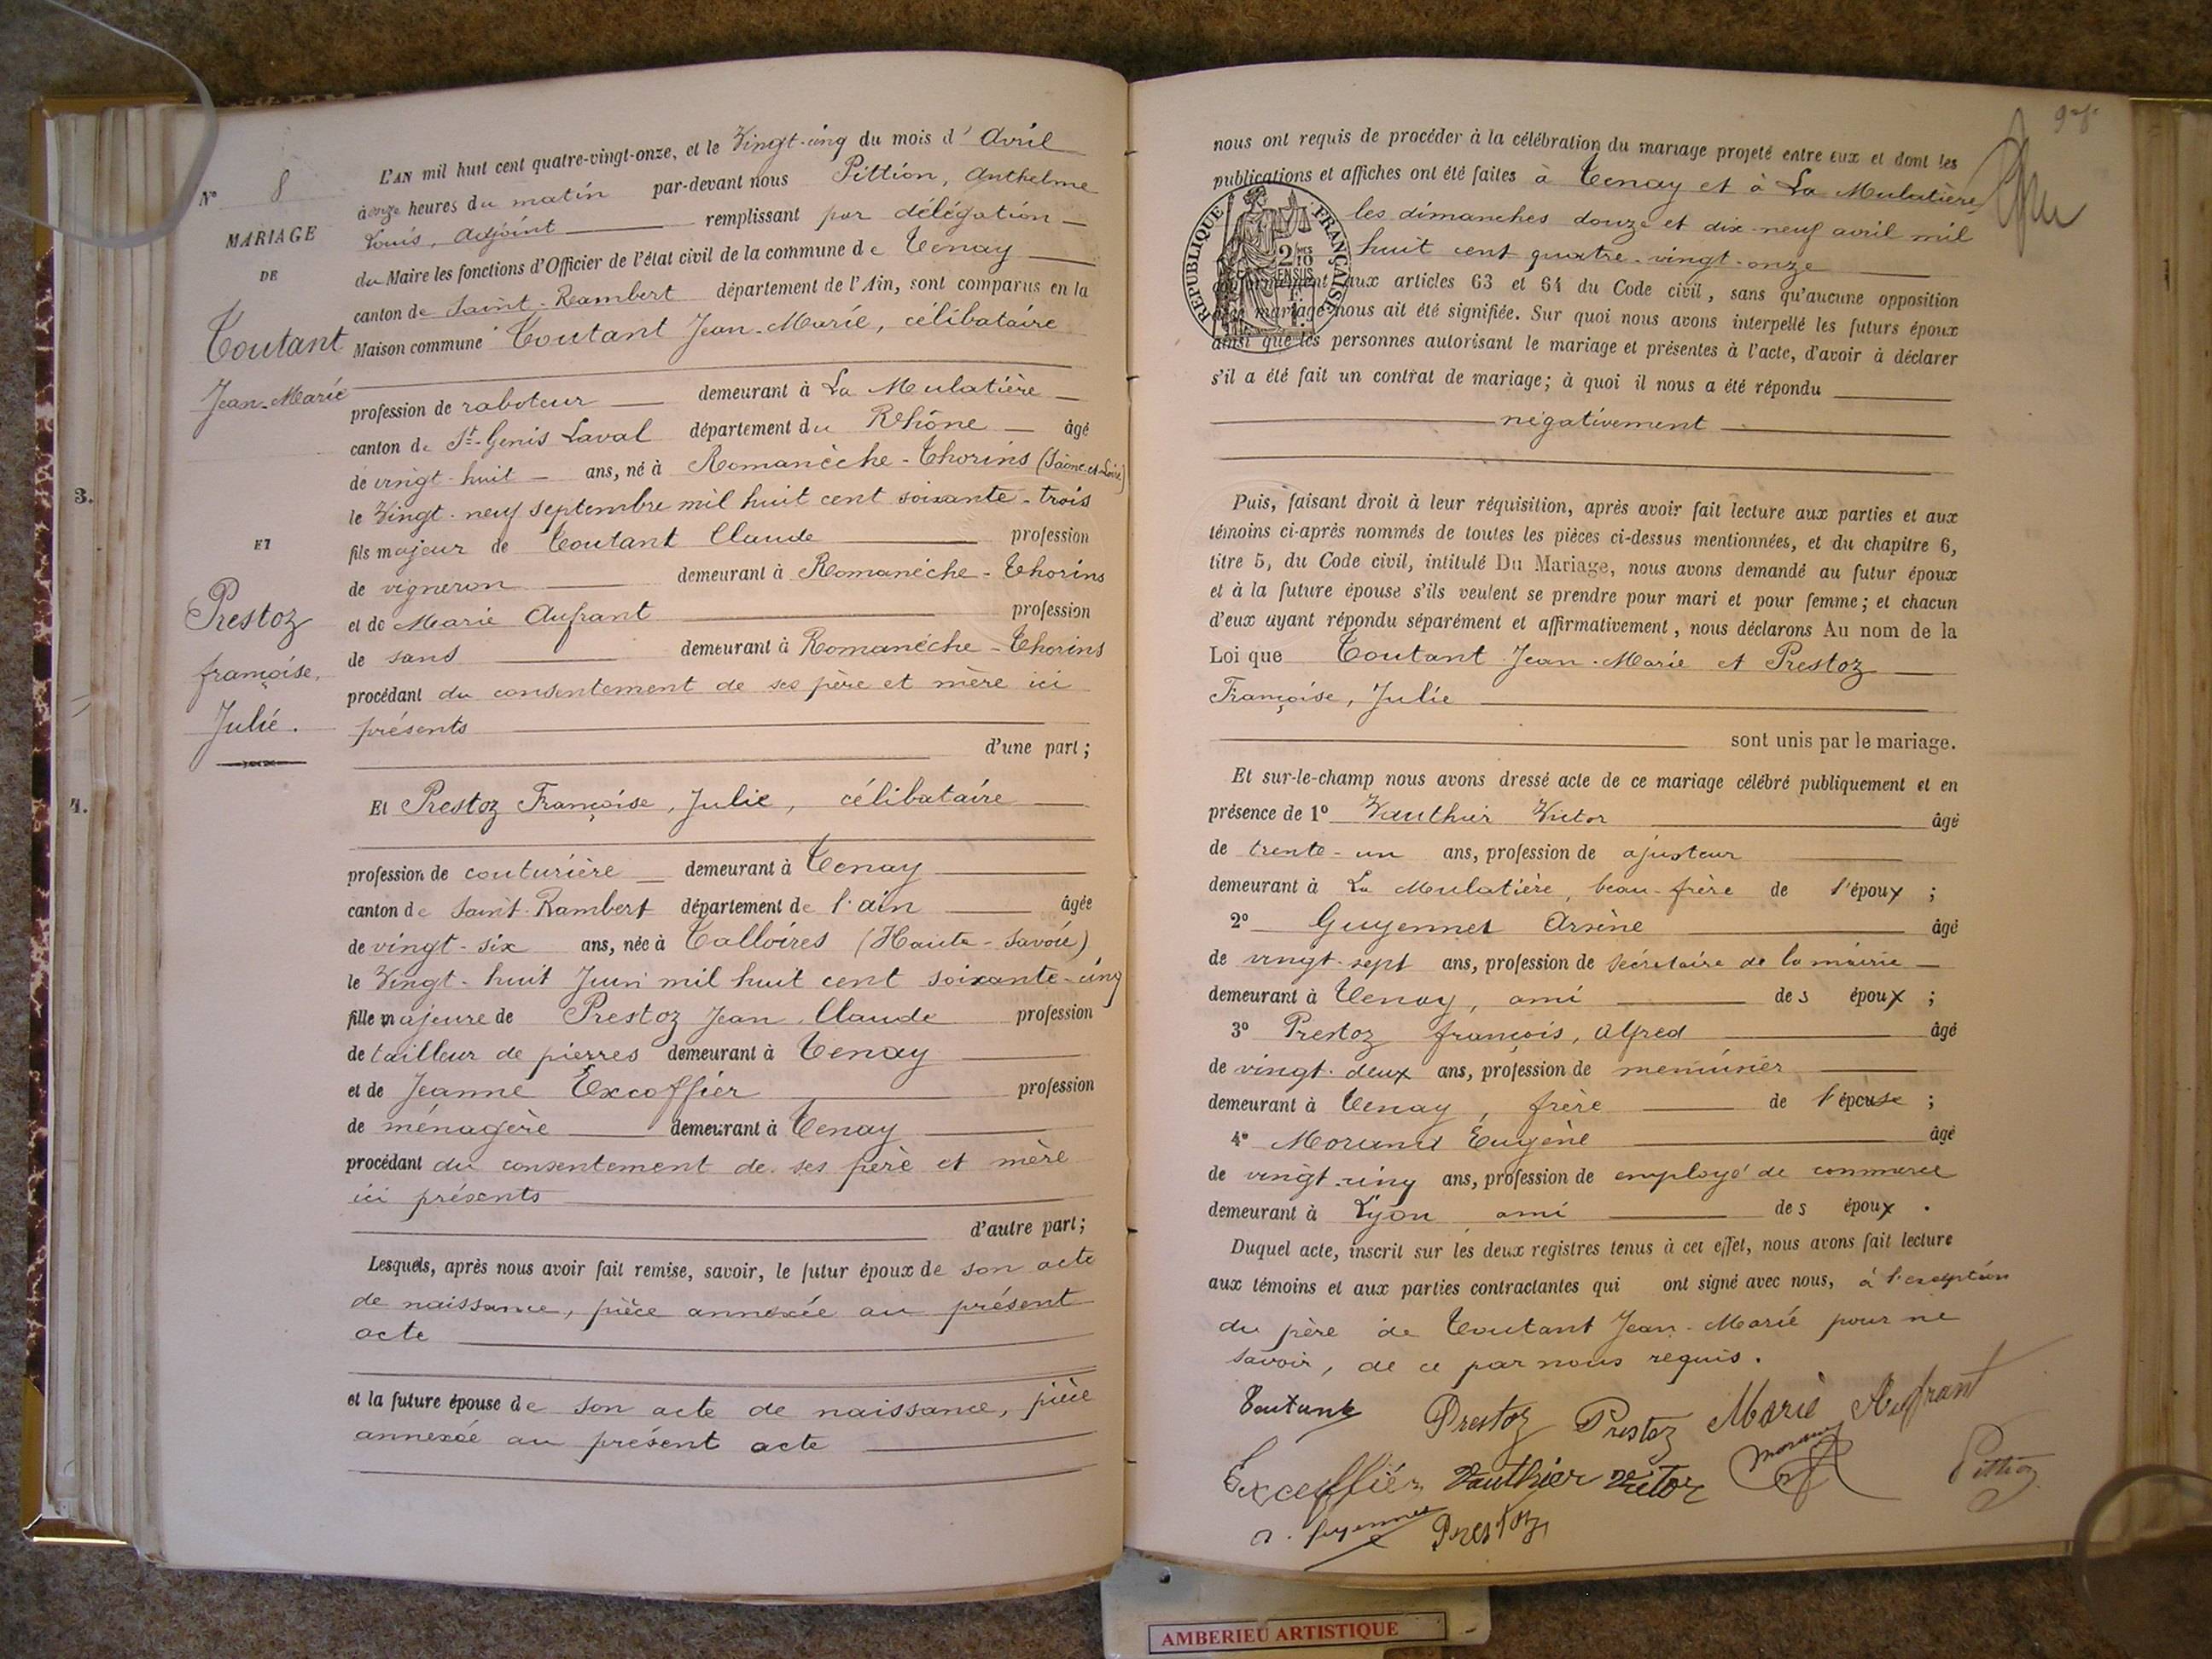 N° 8
MARIAGE
DE
Toutant
Jean-Marie
ET
Prestoz
françoise,
Julie.
3.
4.
L'AN mil huit cent quatre-vingt-onze, et le Vingt-cinq du mois d'Avril
à onze heures du matin par-devant nous Pittion, Anthelme
Louis, Adjoint remplissant par délégation
du Maire les fonctions d'Officier de l'état civil de la commune de Tenay
canton de Saint-Rambert département de l'Ain, sont comparus en la
Maison commune Toutant Jean-Marie, célibataire
profession de raboteur demeurant à La Mulatière
canton de St-Genis Laval département du Rhône âgé
de vingt-huit ans, né à Romanèche-Thorins (Saône-et-Loire)
le Vingt-neuf septembre mil huit cent soixante-trois
fils majeur de Toutant Claude profession
de vigneron demeurant à Romanéche-Thorins
et de Marie Aufrant profession
de sans demeurant à Romanéche-Thorins
procédant du consentement de ses père et mère ici
présents
d'une part;
Et Prestoz Françoise, Julie, célibataire
profession de couturière demeurant à Tenay
canton de Saint-Rambert département de l'ain âgée
de vingt-six ans, née à Talloires (Haute-Savoie)
le Vingt-huit Juin mil huit cent soixante-cinq
fille majeure de Prestoz Jean Claude profession
de tailleur de pierres demeurant à Tenay
et de Jeanne Excoffier profession
de ménagère demeurant à Tenay
procédant du consentement de ses père et mère
ici présents
d'autre part;
Lesquels, après nous avoir fait remise, savoir, le futur époux de son acte
de naissance, pièce annexée au présent
acte
et la future épouse de son acte de naissance, pièce
annexée au présent acte
nous ont requis de procéder à la célébration du mariage projeté entre eux et dont les
publications et affiches ont été faites à Tenay et à La Mulatière,
les dimanches douze et dix-neuf avril mil
huit cent quatre-vingt-onze
RÉPUBLIQUE FRANÇAISE
2/10 EN SUS
conformément aux articles 63 et 64 du Code civil, sans qu'aucune opposition
audit mariage nous ait été signifiée. Sur quoi nous avons interpellé les futurs époux
ainsi que les personnes autorisant le mariage et présentes à l'acte, d'avoir à déclarer
s'il a été fait un contrat de mariage; à quoi il nous a été répondu
négativement
Puis, faisant droit à leur réquisition, après avoir fait lecture aux parties et aux
témoins ci-après nommés de toutes les pièces ci-dessus mentionnées, et du chapitre 6,
titre 5, du Code civil, intitulé Du Mariage, nous avons demandé au futur époux
et à la future épouse s'ils veulent se prendre pour mari et pour femme; et chacun
d'eux ayant répondu séparément et affirmativement, nous déclarons Au nom de la
Loi que Toutant Jean-Marie et Prestoz
Françoise, Julie
sont unis par le mariage.
Et sur-le-champ nous avons dressé acte de ce mariage célébré publiquement et en
présence de 1° Vauthier Victor âgé
de trente-un ans, profession de ajusteur
demeurant à La Mulatière, beau-frère de l'époux;
2° Guyennet Arsène âgé
de vingt-sept ans, profession de secrétaire de la mairie
demeurant à Tenay, ami des époux;
3° Prestoz françois, Alfred âgé
de vingt-deux ans, profession de menuisier
demeurant à Tenay, frère de l'épouse;
4° Morand Eugène âgé
de vingt-cinq ans, profession de employé de commerce
demeurant à Lyon ami des époux.
Duquel acte, inscrit sur les deux registres tenus à cet effet, nous avons fait lecture
aux témoins et aux parties contractantes qui ont signé avec nous, à l'exception
du père de Toutant Jean-Marie pour ne
savoir, de ce par nous requis.
Toutant Prestoz Prestoz Marie Aufrant
Excoffier Vauthier Victor Morand Pittion
A. Guyennet Prestoz
AMBERIEU ARTISTIQUE